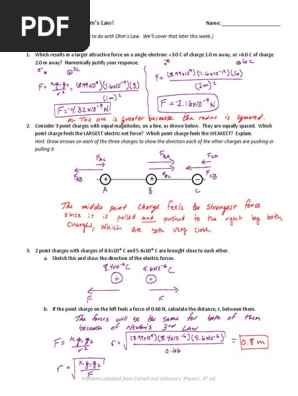 PDF
hm's Law!
Name:
to do with Ohm's Law. We'll cover that this week.)
1. Which results in a larger attractive force on a single electron: +3.0 C of charge 1.0 m away, or +6.0 C of charge
2.0 m away? Numerically justify your response.
F = kq₁q₂/r² = (8.99x10⁹)(1.6x10⁻¹⁹)(3)/(1m)²
F = (8.99x10⁹)(1.6x10⁻¹⁹)(6)/(2m)²
F = 4.32x10⁻⁹ N
F = 2.16x10⁻⁹ N
This one is greater because the radius is squared.
2. Consider 3 point charges with equal magnitudes, on a line, as shown below. They are equally spaced. Which
point charge feels the LARGEST electric net force? Which point charge feels the WEAKEST? Explain.
Hint: Draw arrows on each of the three charges to show the direction each of the other charges are pushing or
pulling it.
F_AC F_BA
F_AB F_BC F_CB
+ + -
A B C
The middle point charge feels the strongest force
since it is pulled and pushed to the right by both
charges, which are both very close.
3. 2 point charges with charges of 8.4x10⁻⁶ C and 5.6x10⁻⁶ C are brought close to each other.
a. Sketch this and show the direction of the electric forces.
8.4x10⁻⁶C 5.6x10⁻⁶C
+ +
F F
b. If the point charge on the left feels a force of 0.66 N, calculate the distance, r, between them.
The forces will be the same for both of them
because of Newton's 3rd Law
F = kq₁q₂/r² r = √((8.99x10⁹)(8.4x10⁻⁶)(5.6x10⁻⁶)/0.66) = 0.8 m
r = √(kq₁q₂/F)
Problems adapted from Cutnell and Johnson's Physics. 8th ed.